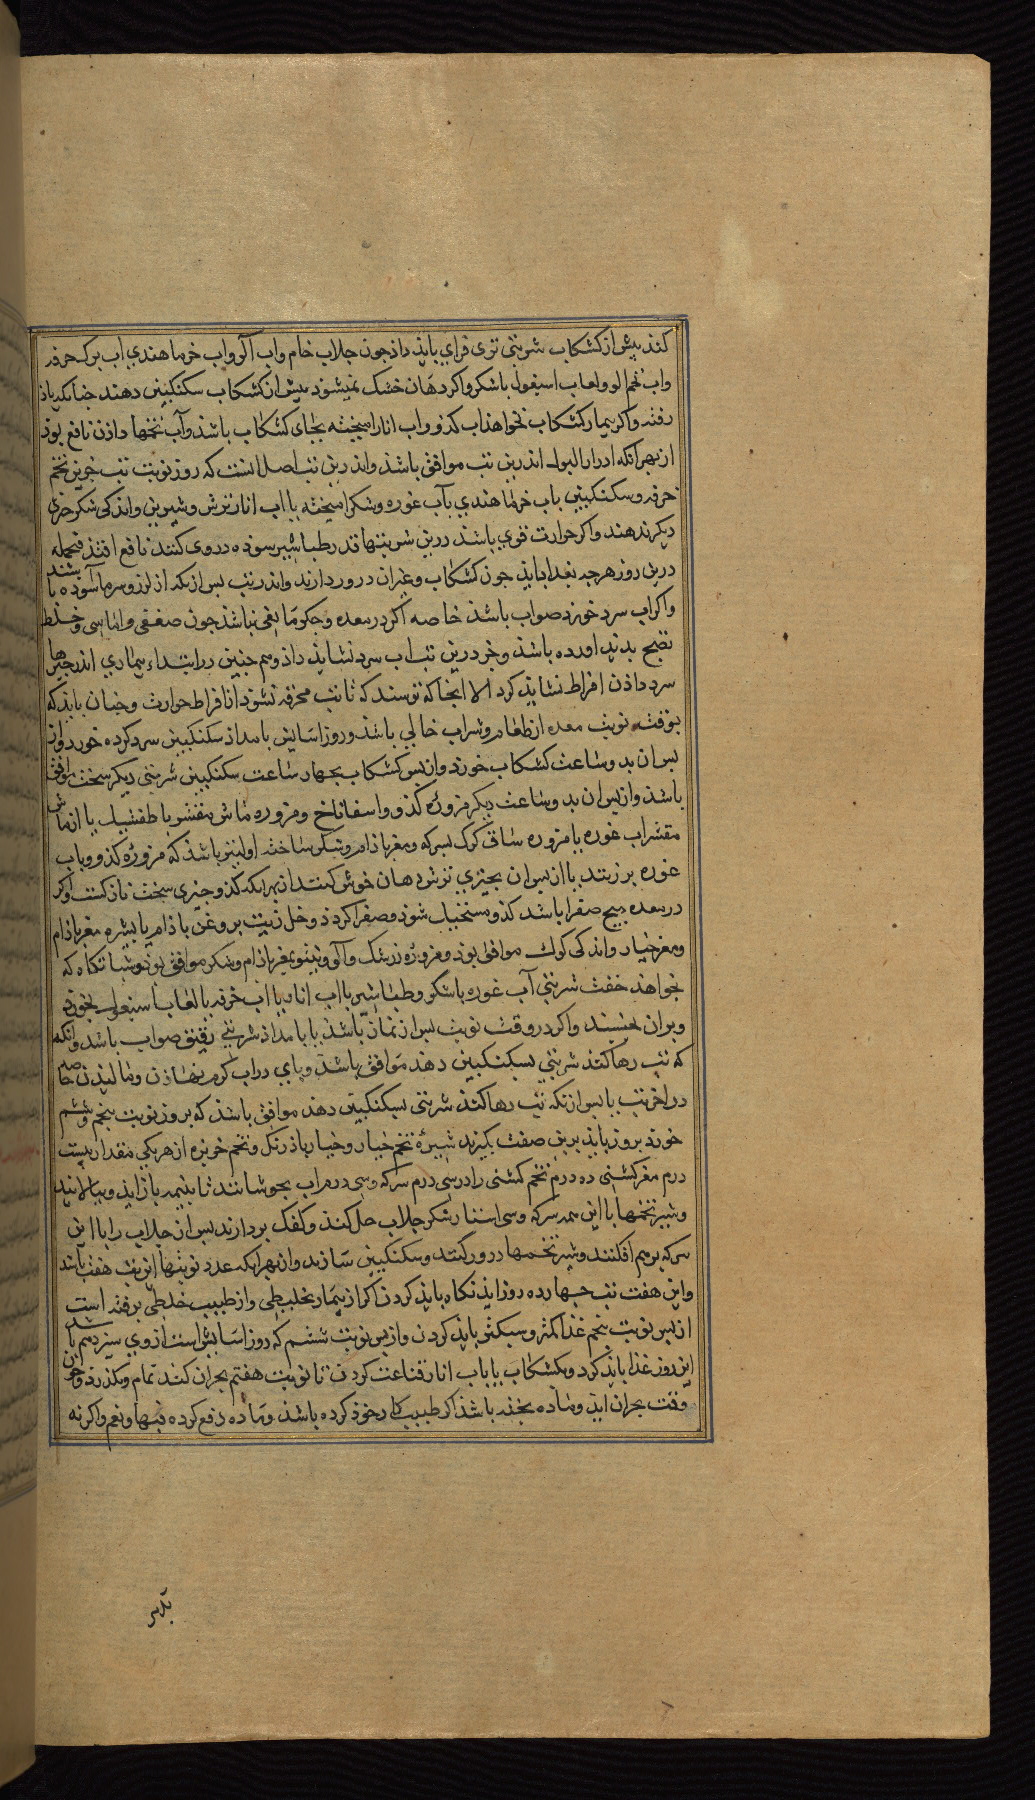 کنذ بیش از کشکاب شربتی تری فزای بایذ داذ جون جلاب خام واب آلو واب خرما هندي اب برک خرفه
واب تخم الو ولعاب اسبغول باشکر واکر دهان خشک نمیشود بیش از کشکاب سکنکبین دهند جنانک یاذ
رفته واکر بیمار کشکاب نخواهذ اب کذو واب انار امیخته بجای کشکاب باشذ وآب تخمها داذن نافع بوذ
از بهر آنکه ادرار البول اندرین تب موافق باشذ واندرین تب اصل انست که روز نوبت تب جزین تخم
خرفه وسکنکبین باب خرما هندي بآب غوره وشکر امیخته یا اب انار ترش وشیرین واندکی شکر جزی
دیکر ندهند واکر حرارت قوي باشذ درین شربتها قدر طباشیر سوده در وی کنند نافع افتذ فی جمله
درین روز هرجه بغدا بایذ جون کشکاب وغیران دور دارند واندر تب بس ازنکه از لرز وسرما آسوده باشند
واکر اب سرد خورذ صواب باشذ خاصه اکر در معده وجکر مانعی نباشذ جون ضعفی واماسی وخلط
نضج بدید اورده باشذ وجز درین تب اب سرد نشایذ داذ وهم جنین در ابتداء بیماري اندر جیزها
سرد داذن افراط نشایذ کرد الا انجا که ترسند که تا تب محرقه نشوذ از افراط حرارت وجنان بایذ که
بوقت نوبت معده از طعام وشراب خالي باشذ وروز اسایش بامداذ سکنکبین سرد کرده خورد واز
بس ان بدو ساعت کشکاب خورذ واز بس کشکاب بجهار ساعت سکنکبین شربتی دیکر سخت موافق
باشذ واز بس ان بدو ساعت دیکر مزوره کذو واسفاناخ ومزوره ماش مقشر با طفشیل یا از ماش
مقشر اب غوره یا مزوره ساق کوک بسرکه ومغز باذام وشکر ساخته اولیتر باشذ که مزوره کذو وباب
غوره بر زنند یا از بس ان بجیزي ترش دهان خوش کنند از بهر انکه کذو جیزی سخت نازکست واکر
در معده هیج صفرا باشد کذو مستحیل شوذ وصفرا کردذ وخل زیت بروغن باذام یا بشیره مغز باذام
ومغز خیار واندکی کوک موافق بوذ ومزوره زرشک وآلو ونیشو بمغز باذام وشکر موافق بوذ وشبانکاه که
خواهذ خفت شربتی آب غوره باشکر وطباشیر یا اب انار یا اب خرفه یا لعاب اسبغول بخورذ
وبران بخسبند واکر در وقت نوبت بس از نماز باشذ یا بامداذ شربتی رقیق صواب باشد وانکه
که تب رها کنذ شربتی سکنکبین دهذ موافق باشذ وپاي در اب کرم نهاذن ومالیذن خاصه
در اخر تب یا بس ازنکه تب رها کنذ شربتی سکنکبین دهذ موافق باشذ که بروز نوبت بنجم وششم
خورذ بروز بایذ برین صفت بکیرند شیره تخم خیار وخیار باذرنک وتخم خربزه از هر یکی مقدار بیست
درم مغز کشنی ده درم تخم کشنی را در سی درم سرکه وسی درم اب بجوشانند تا بنیمه باز ایذ وببالایند
وشیر تخمها با این همه سرکه وسی استار شکر جلاب حل کنذ وکفک بردارند بس از جلاب را با این
سرکه برهم افکنند وشیر تخمها در ور کنند وسکنکبین سازند واز بهر انکه عدد نوبتها این تب هفت باشد
واین هفت تب جهارده روز ایذ نکاه بایذ کردن اکر از بیمار تخلیطي واز طبیب خلطي نرفته است
از بس نوبت بنجم غذا کمتر وسبکتر بایذ کردن واز بس نوبت ششم که روز اسایش است از وي سیزدهم باشد
این روز غذا بایذ کرد وبکشکاب یا باب انار قناعت کردن تا نوبت هفتم بحران کند تمام وبکذرد وجون
وقت بحران ایذ وماده بخته باشذ اکر طبیب کار خوذ کرده باشذ وماده دفع کرده فبها ونعم واکر نه